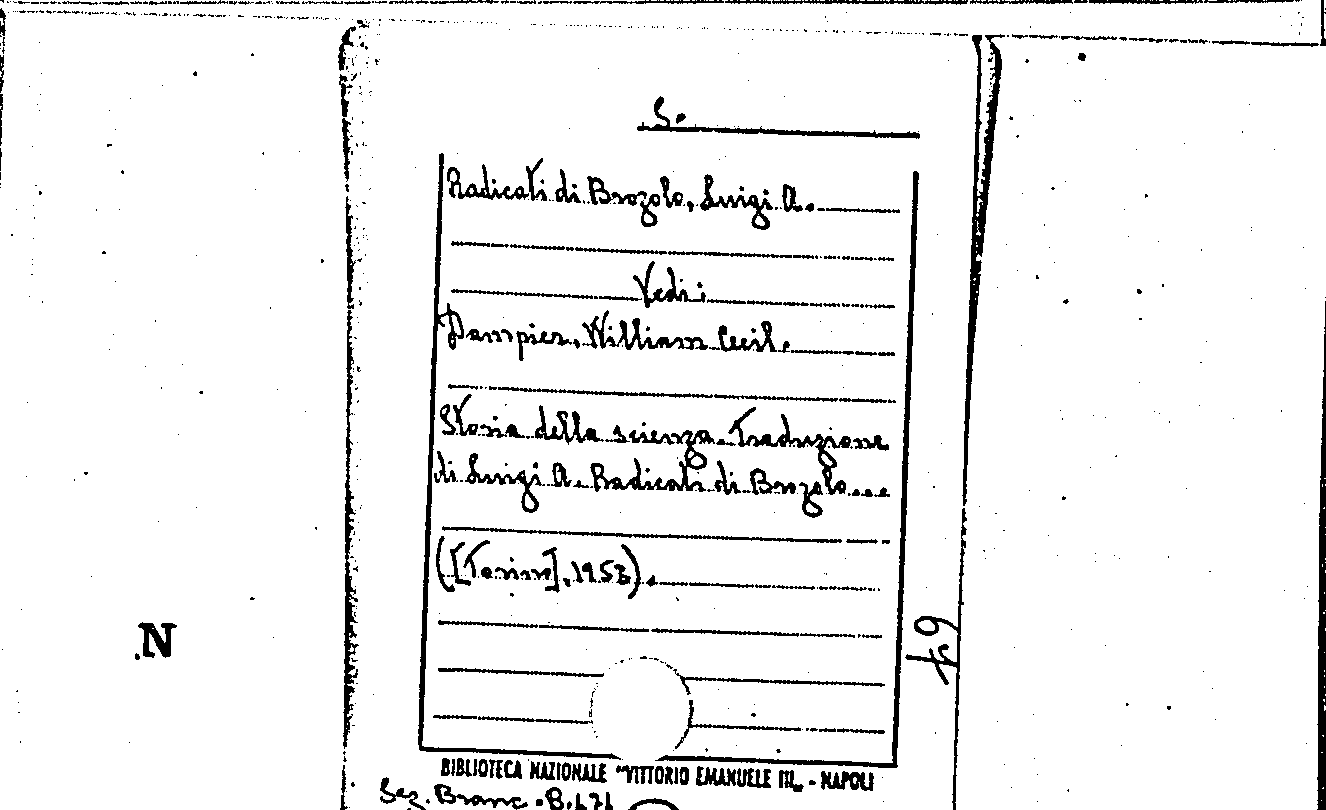 S.
Radicati di Brozolo, Luigi A.
Vedi:
Dampier, William Cecil.
Storia della scienza. Traduzione
di Luigi A. Radicati di Brozolo...
([Torino], 1953).
64
N
BIBLIOTECA NAZIONALE "VITTORIO EMANUELE III" - NAPOLI
Sez. Branc.